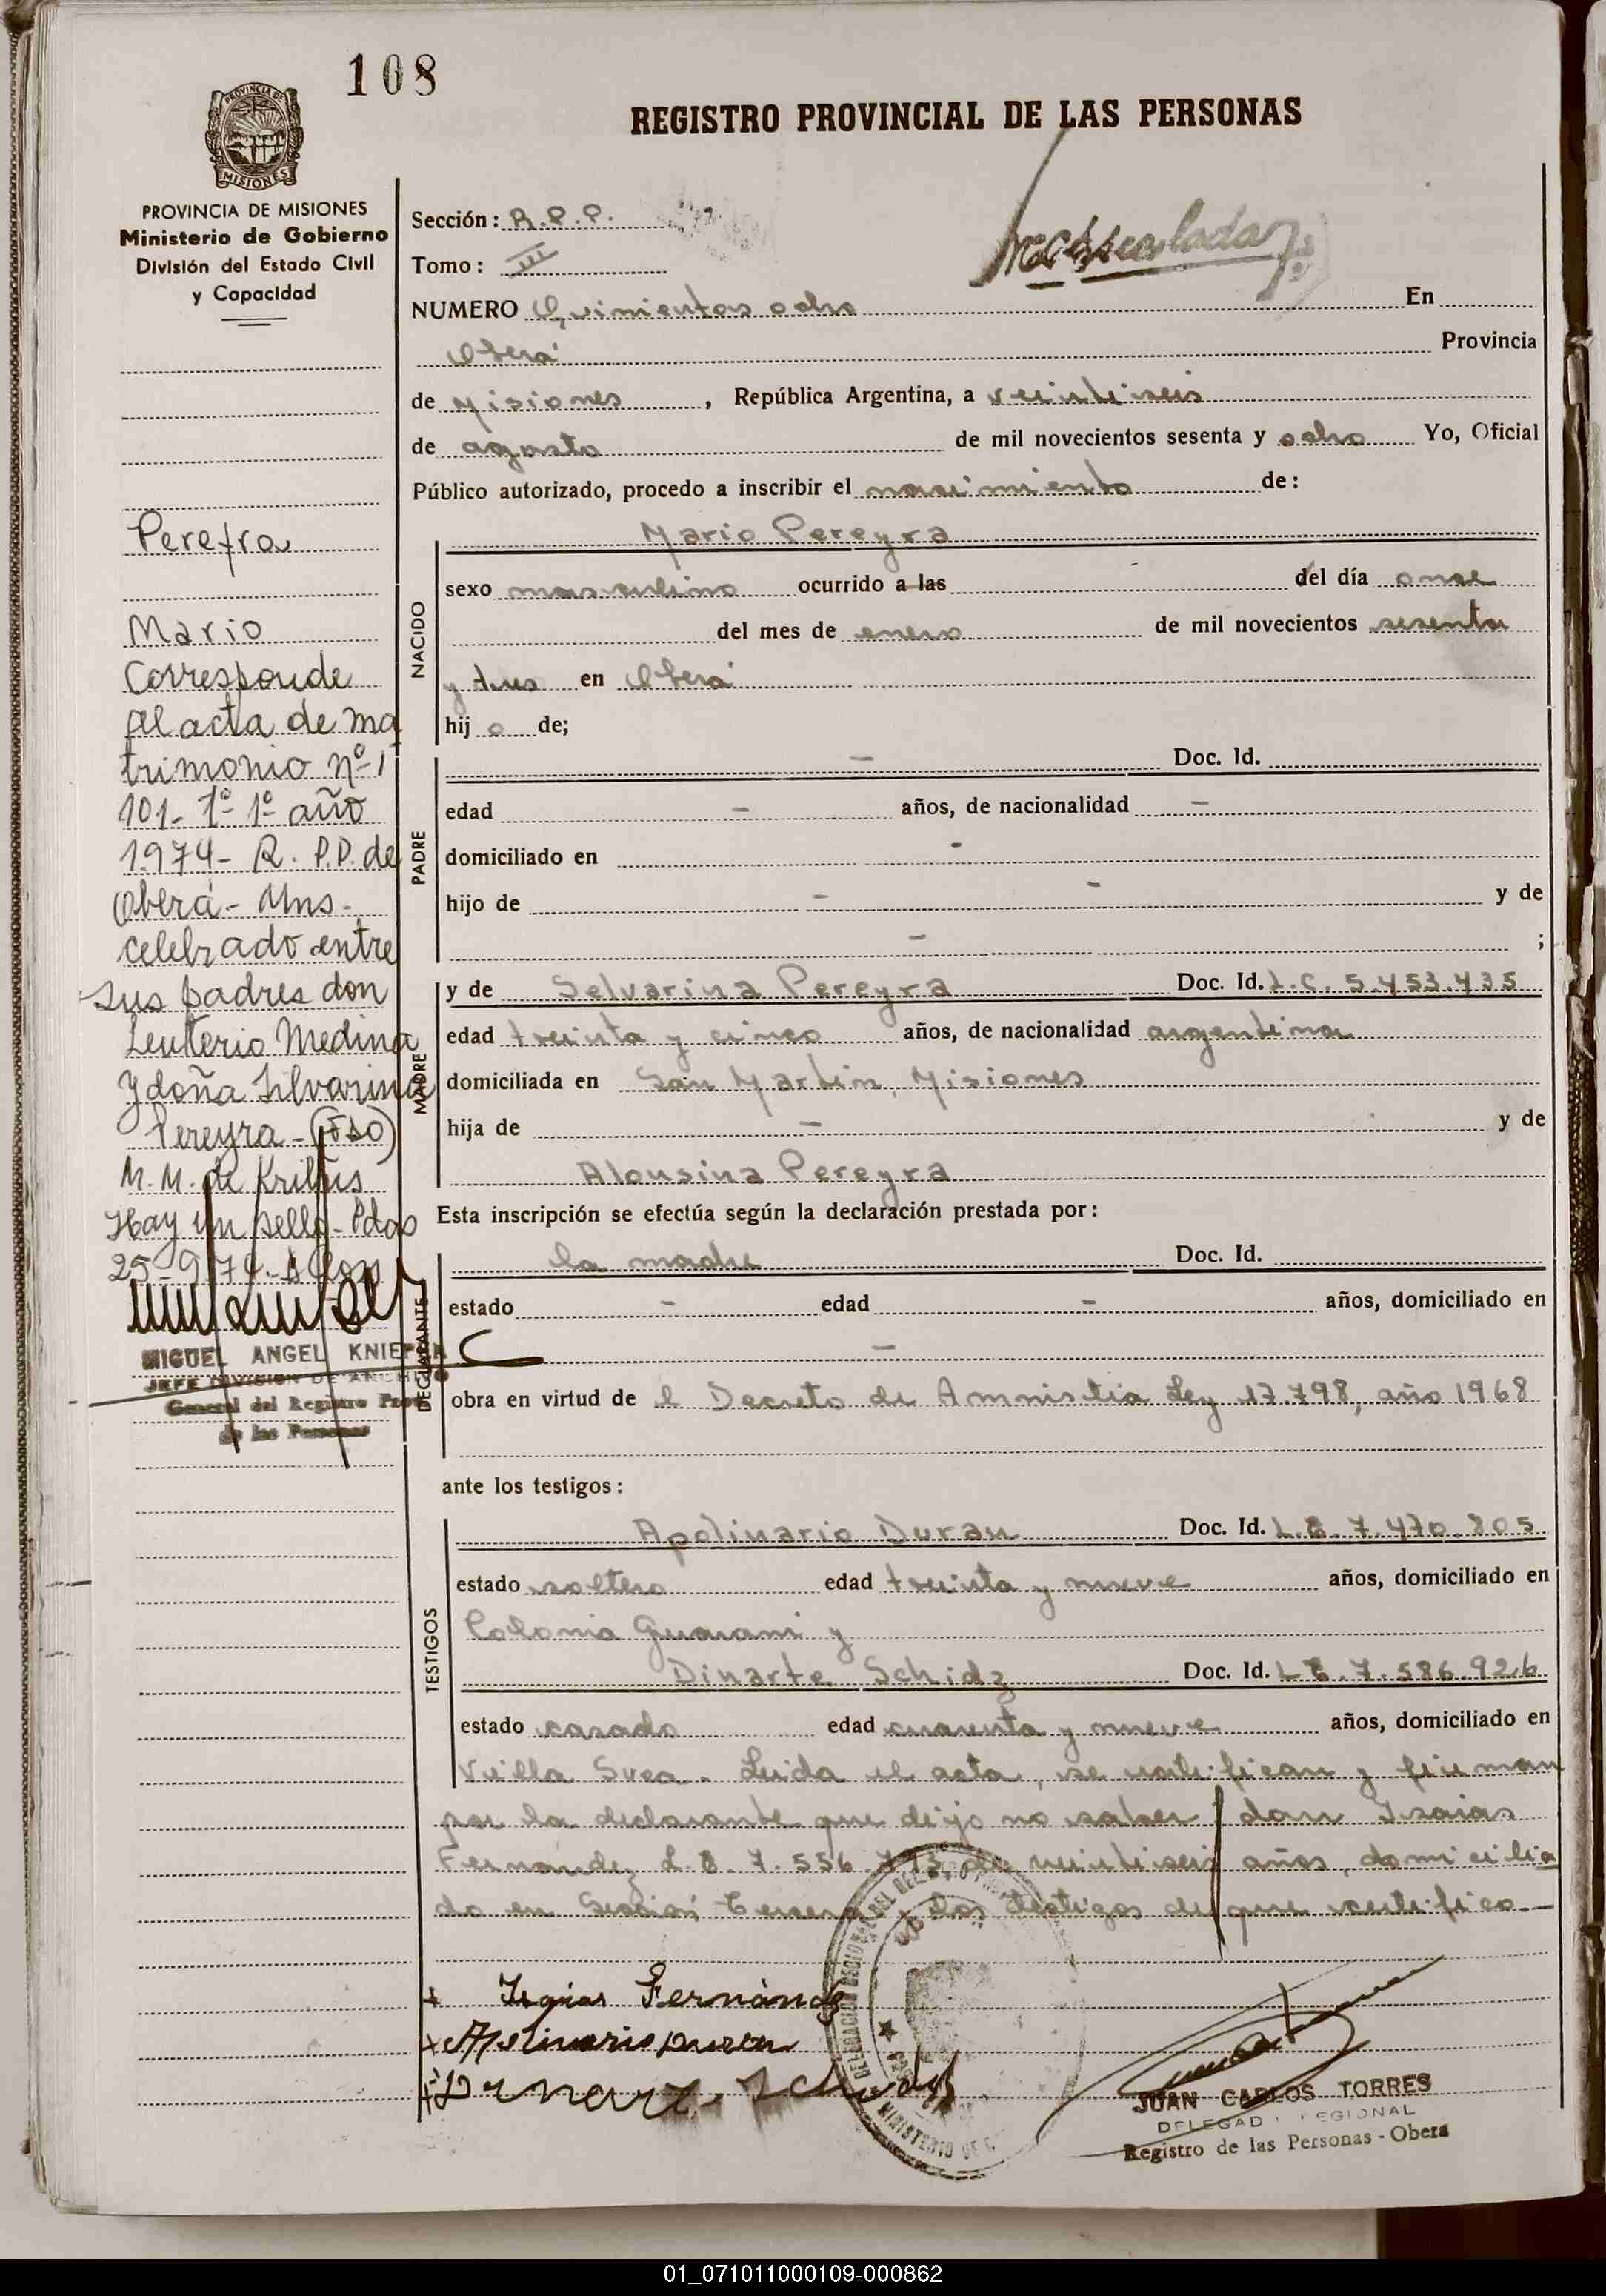 108
REGISTRO PROVINCIAL DE LAS PERSONAS
PROVINCIA DE MISIONES
Ministerio de Gobierno
División del Estado Civil
y Capacidad
Perefra
Mario
Corresponde
al acta de ma
trimonio nº 1
101- 1º 1º año
1974- R. P.P. de
Oberá- Mns-
celebrado entre
sus padres don
Leuterio Medina
y doña Silvarina
Pereyra - (Fdo)
M. M. de
Hay un sello - Pdas
MIGUEL ANGEL
JEFE DIVISION DE ARCHIVO
General del Registro Prov.
de las Personas
Sección: R.P.P.
Tomo: III
NUMERO Quinientos ocho En
Oberá Provincia
de Misiones, República Argentina, a veintiseis
de agosto de mil novecientos sesenta y ocho Yo, Oficial
Público autorizado, procedo a inscribir el nacimiento de:
Mario Pereyra
NACIDO
sexo masculino ocurrido a las del día once
del mes de enero de mil novecientos sesenta
y tres en Oberá
hij o de;
PADRE
- Doc. Id.
edad - años, de nacionalidad -
domiciliado en -
hijo de - - y de
- ;
MADRE
y de Selvarina Pereyra Doc. Id. L.C. 5.453.435
edad treinta y cinco años, de nacionalidad argentina
domiciliada en San Martin, Misiones
hija de - y de
Alousina Pereyra
Esta inscripción se efectúa según la declaración prestada por:
DECLARANTE
la madre Doc. Id.
estado - edad - años, domiciliado en
-
obra en virtud de l Decreto de Amnistia Ley 17.798, año 1968
ante los testigos:
TESTIGOS
Apolinario Duran Doc. Id. L.E. 7.470.805
estado soltero edad treinta y nueve años, domiciliado en
Colonia Guarani y
Dinarte Schidz Doc. Id. L E. 7.586.926
estado casado edad cuarenta y nueve años, domiciliado en
Villa Svea. Leida el acta, se ratifican y firman
por la declarante que dijo no saber don Isaias
Fernandez L.E. 7.556. de veintiseis años, domicilia
do en Sección Tercera y los testigos de que certifico.-
Isaias Fernández
Apolinario Duran
JUAN CARLOS TORRES
DELEGADO REGIONAL
Registro de las Personas - Oberá
01_071011000109-000862